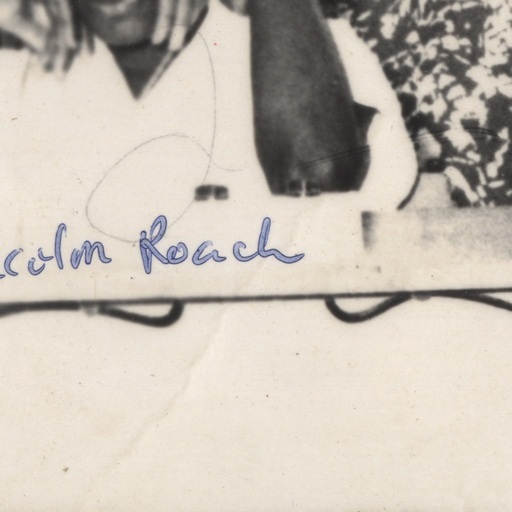 colm Roach